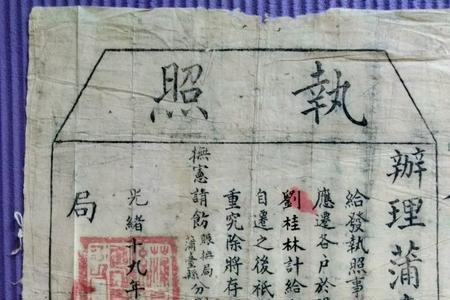 執照
辦理蒲
給發執照事
應遷各戶於
劉桂林計給
自遷之後祇
重究除將存
撫憲請飭賑撫局蒲臺縣分
光緒十九年
局